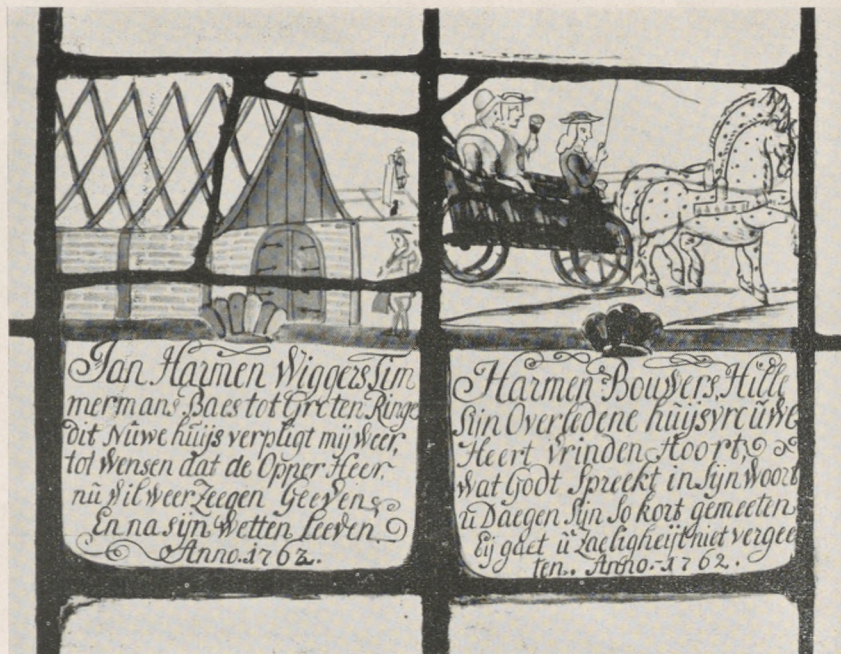 Jan Harmen Wiggers Tim
mermans Baes tot Groten Ringe
dit Nuwe huijs verpligt mij weer,
tot wensen dat de Opper Heer,
nu wil weer Zeegen Geeven,
En na sijn Wetten Leeven
Anno. 1762.
Harmen Bouwers, Hille
Sijn Overledene huijsvrouwe
Heert vrinden Hoort
wat Godt Spreekt in sijn woort
u Daegen Sijn so kort gemeeten
Eij gaet u Zaeligheijt niet vergee
ten. Anno. 1762.